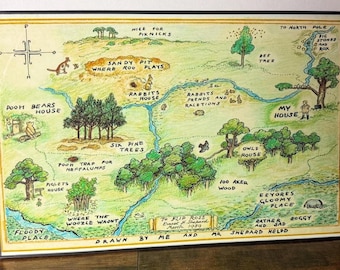 NICE FOR
PIKNICKS
TO NORTH POLE
BIG
STONES
AND
ROX
BEE
TREE
SANDY PIT
WHERE ROO PLAYS
RABBITS
HOUSE
RABBITS
FRENDS AND
RALETIONS
MY
HOUSE
POOH BEARS
HOUSE
SIX PINE
TREES
OWLS
HOUSE
POOH TRAP FOR
HEFFALUMPS
100 AKER
WOOD
PIGLETS
HOUSE
WHERE THE
WOOZLE WASNT
EEYORES
GLOOMY
PLACE
RATHER BOGGY
AND SAD
FLOODY
PLACE
DRAWN BY ME AND MR SHEPARD HELPD